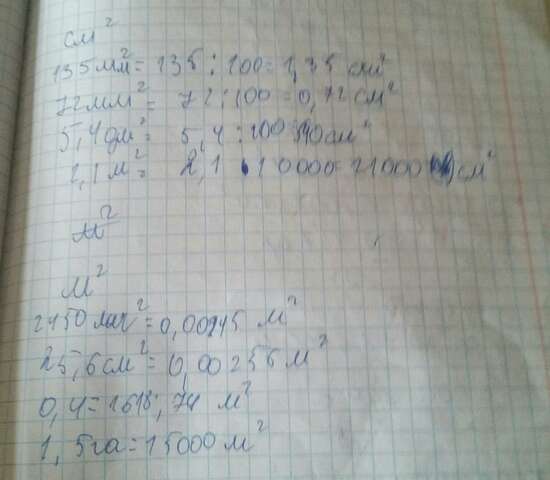 см²
135 мм² = 135 : 100 = 1,35 см²
72 мм² = 72 : 100 = 0,72 см²
5,4 дм² = 5,4 : 100 540 см²
2,1 м² = 2,1 · 10000 = 21000 см²
м²
м²
2450 мм² = 0,00245 м²
25,6 см² = 0,00256 м²
0,4 = 1618,74 м²
1,5 га = 15000 м²